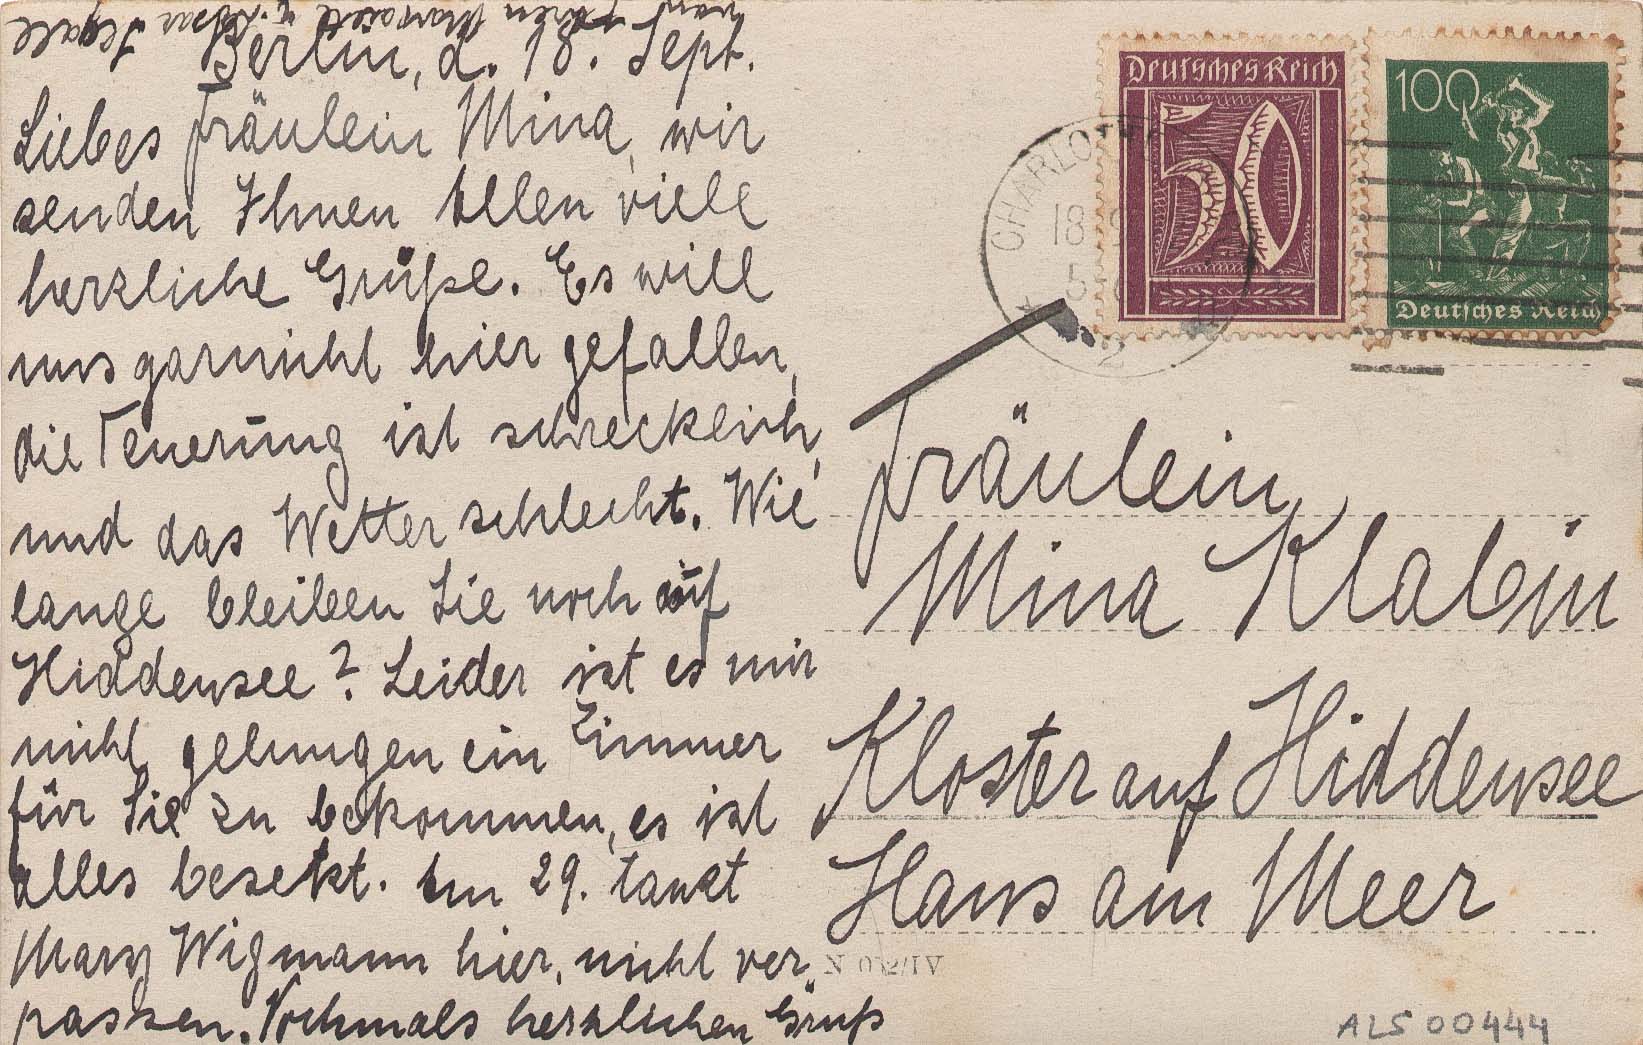 Berlin, d. 18. Sept.
Liebes Fräulein Mina, wir
senden Ihnen Allen viele
herzliche Grüße. Es will
uns garnicht hier gefallen,
die Teuerung ist schrecklich,
und das Wetter schlecht. Wie
lange bleiben Sie noch auf
Hiddensee? Leider ist es mir
nicht gelungen ein Zimmer
für Sie zu bekommen, es ist
alles besetzt. Am 29. tanzt
Mary Wigmann hier, nicht ver
passen. Nochmals herzlichen Gruß
von Ihren Margarete u. Lasar Segall
Deutsches Reich
50
100
Deutsches Reich
CHARLOTTE
18 9
5-6
2
Fräulein
Mina Klabin
Kloster auf Hiddensee
Haus am Meer
ALS 00444